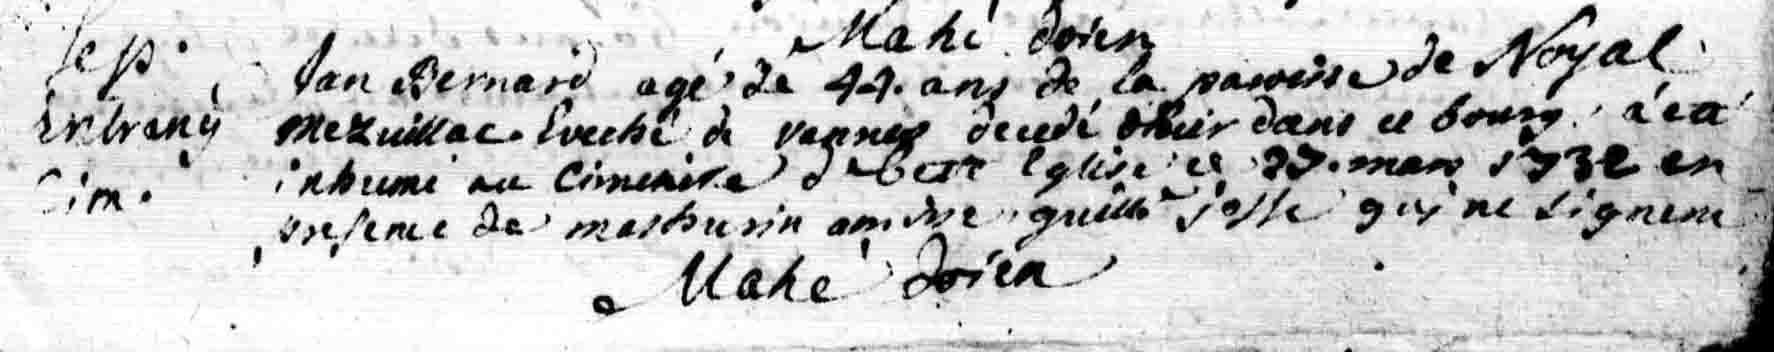 Mahé doien
Sep.
Jan Bernard agé de 44. ans de la paroisse de Noyal
Etrang
Mezuillac. Eveché de vannes decedé dhier dans ce bourg. a eté
Cim.
inhumé au Cimetiere de Cette Eglise ce 27. mars 1732 en
presence de mathurin guill josse qui ne signent
Mahé doien